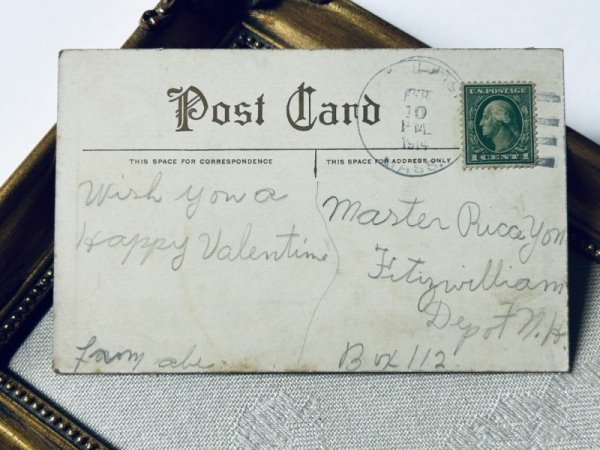 Post Card
THIS SPACE FOR CORRESPONDENCE
THIS SPACE FOR ADDRESS ONLY
10
P.M.
1914
MASS.
U.S. POSTAGE
1 CENT 1
Wish you a
Happy Valentine
from abe.
Master Ricca Yon
Fitzwilliam
Depot N.H.
Box 112